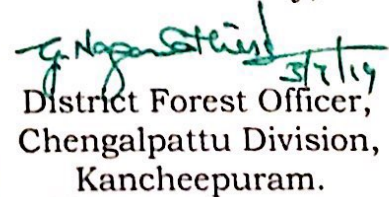 3/7/19
District Forest Officer,
Chengalpattu Division,
Kancheepuram.